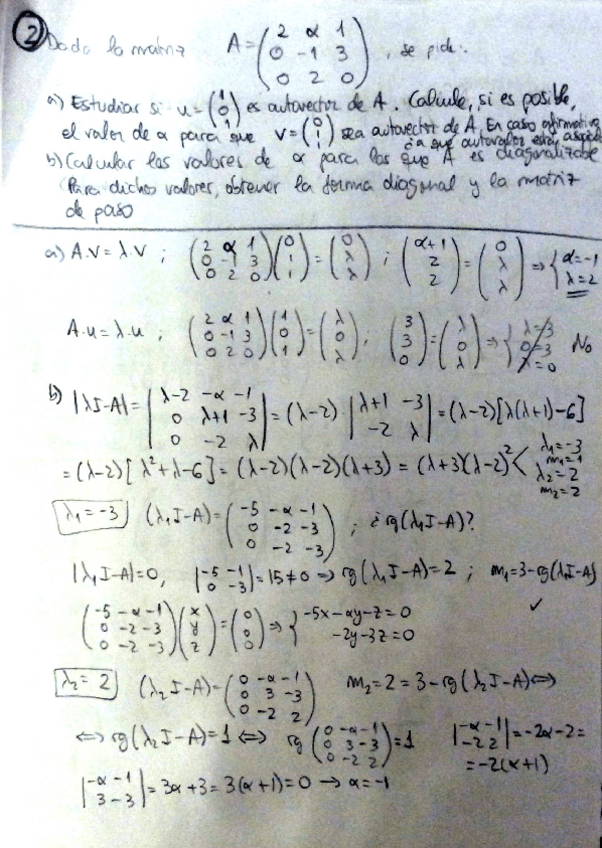 ② Dada la matriz A = ( 2 α 1 ; 0 -1 3 ; 0 2 0 ) , se pide:
a) Estudiar si u = ( 1 ; 0 ; 1 ) es autovector de A. Calcule, si es posible,
el valor de α para que v = ( 0 ; 1 ; 1 ) sea autovector de A. En caso afirmativo
¿a qué autovalor está
b) Calcular los valores de α para los que A es diagonalizable
Para dichos valores, obtener la forma diagonal y la matriz
de paso
a) A·v = λ·v ; ( 2 α 1 ; 0 -1 3 ; 0 2 0 ) ( 0 ; 1 ; 1 ) = ( 0 ; λ ; λ ) ; ( α+1 ; 2 ; 2 ) = ( 0 ; λ ; λ ) ⇒ { α=-1 ; λ=2
A·u = λ·u ; ( 2 α 1 ; 0 -1 3 ; 0 2 0 ) ( 1 ; 0 ; 1 ) = ( λ ; 0 ; λ ) ; ( 3 ; 3 ; 0 ) = ( λ ; 0 ; λ ) ⇒ { λ=3 ; 0=3 ; λ=0 No
b) |λI-A| = | λ-2 -α -1 ; 0 λ+1 -3 ; 0 -2 λ | = (λ-2) | λ+1 -3 ; -2 λ | = (λ-2)[λ(λ+1)-6]
= (λ-2)[λ²+λ-6] = (λ-2)(λ-2)(λ+3) = (λ+3)(λ-2)² < λ₁=-3 ; m₁=1 ; λ₂=2 ; m₂=2
λ₁=-3 (λ₁I-A) = ( -5 -α -1 ; 0 -2 -3 ; 0 -2 -3 ) ; ¿rg(λ₁I-A)?
|λ₁I-A|=0, | -5 -1 ; 0 -3 | = 15 ≠ 0 ⇒ rg(λ₁I-A)=2 ; m₁=3-rg(λ₁I-A) ✓
( -5 -α -1 ; 0 -2 -3 ; 0 -2 -3 ) ( x ; y ; z ) = ( 0 ; 0 ; 0 ) ⇒ { -5x-αy-z=0 ; -2y-3z=0
λ₂=2 (λ₂I-A) = ( 0 -α -1 ; 0 3 -3 ; 0 -2 2 ) m₂=2=3-rg(λ₂I-A) ⇔
⇔ rg(λ₂I-A)=1 ⇔ rg ( 0 -α -1 ; 0 3 -3 ; 0 -2 2 ) = 1 | -α -1 ; -2 2 | = -2α-2 =
= -2(α+1)
| -α -1 ; 3 -3 | = 3α+3 = 3(α+1) = 0 → α=-1